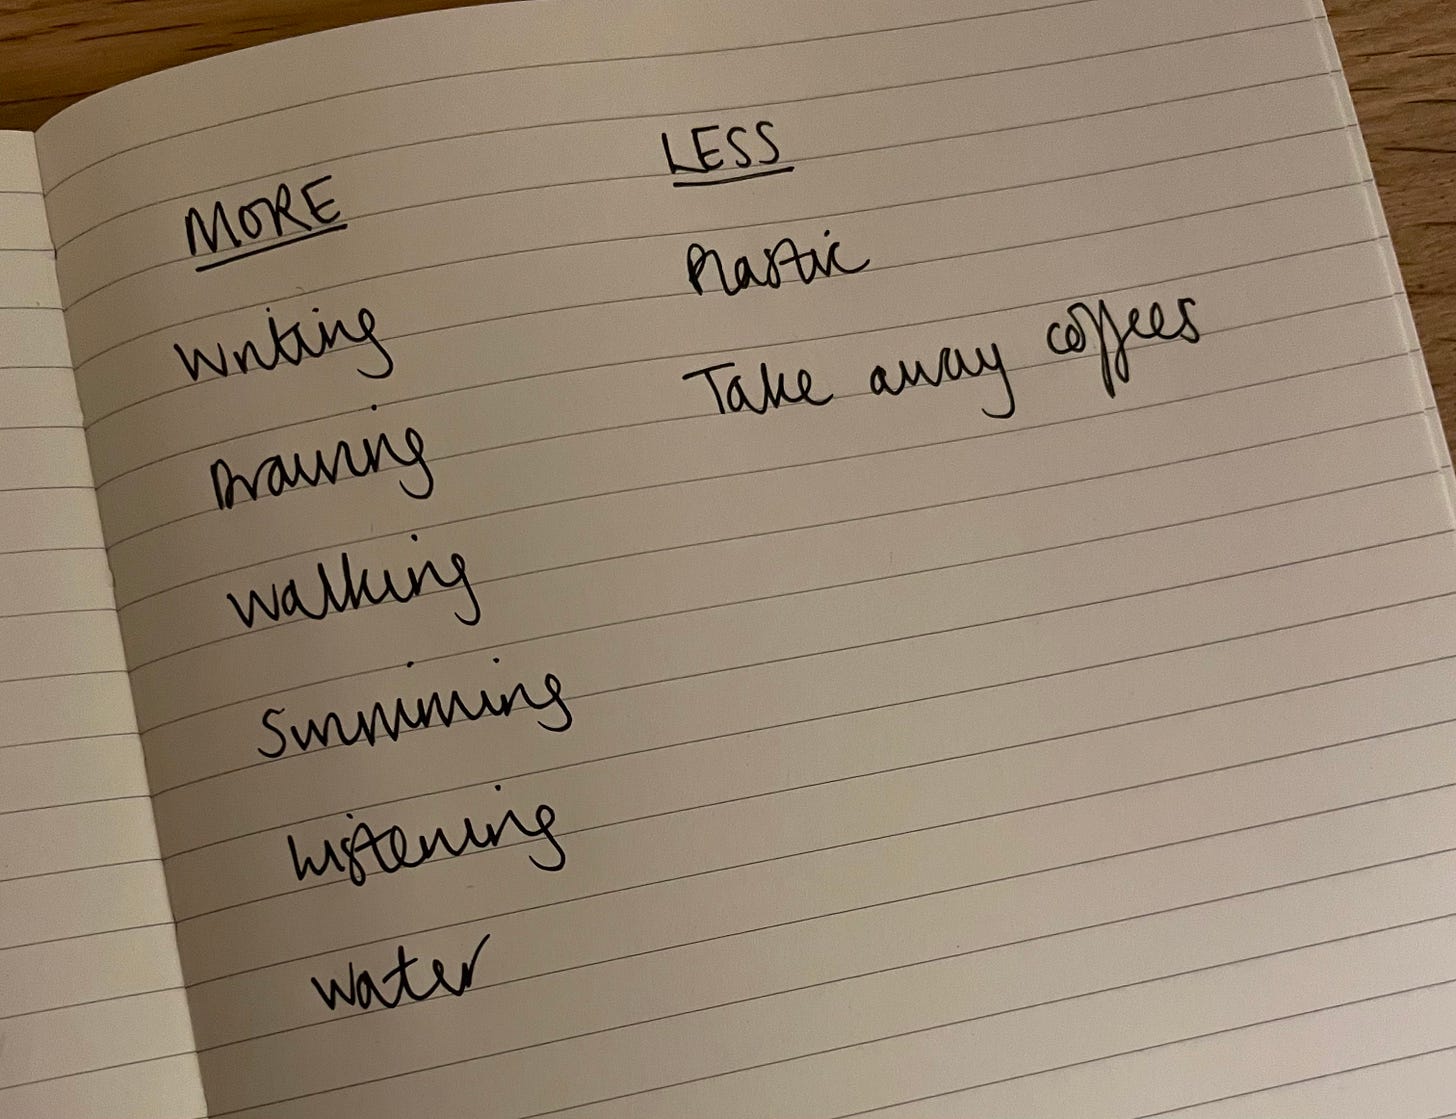 MORE
Writing
Drawing
Walking
Swimming
Listening
Water
LESS
Plastic
Take away coffees